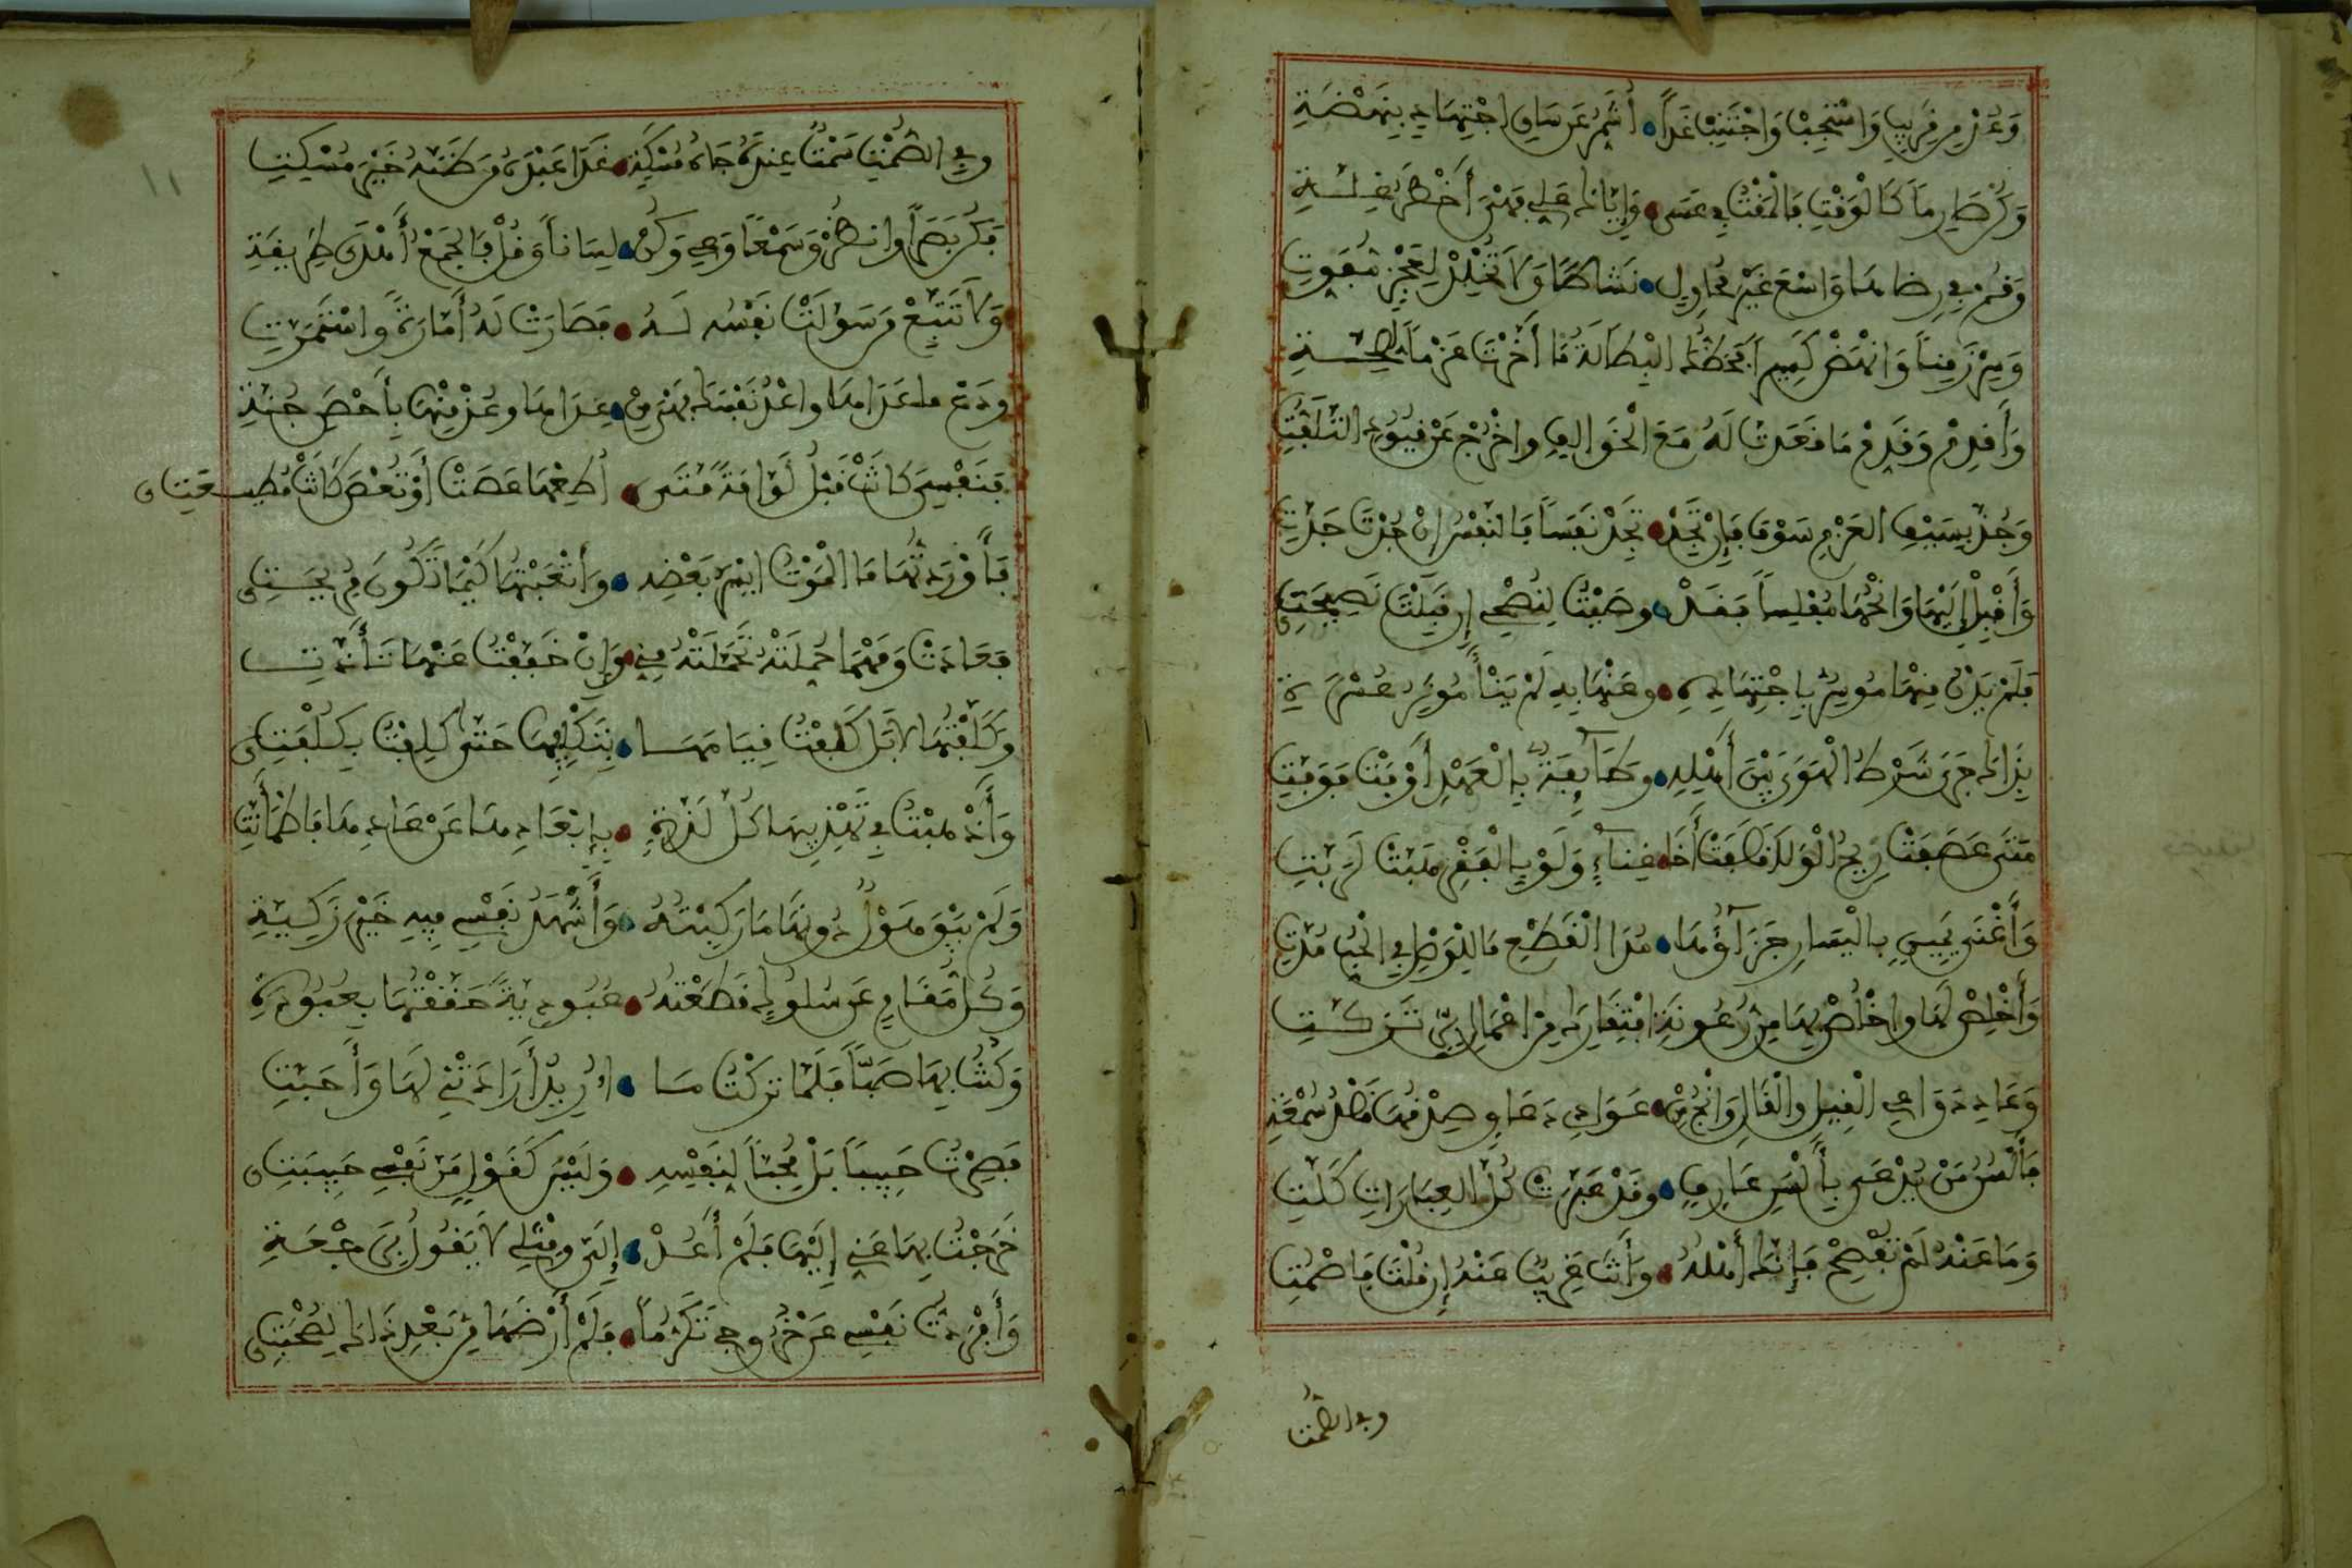 وَعُدْ مِن قَرِيبٍ وَاسْتَجِبْ وَاجْتَنِبْ غَداً • أُشَمِّرُ عَن سَاقِ اجْتِهَادِي بِنَهْضَةِ
وَكُن صَارِماً كَالْوَقْتِ فَالْمَقْتُ فِي عَسَى • وَإِيَّاكَ عَلَى فَهْيَ أَخْطَرُ عِلَّةِ
وَقُمْ فِي رِضَاهَا وَاسْعَ غَيْرَ مُحَاوِلٍ • نَشَاطًا وَلاَ تُخْلِدْ لِعَجْزٍ مُفَوِّتِ
وَسِرْ زَمِناً وَانْهَضْ كَسِيراً فَحَظُّكَ الْبَطَالَةُ مَا أَخَّرْتَ عَزْماً لِصِحَّةِ
وَأَقْدِمْ وَقَدِّمْ مَا قَعَدْتَ لَهُ مَعَ الْخَوَالِفِ وَاخْرُجْ عَنْ قُيُودِ التَّلَفُّتِ
وَجُذَّ بِسَيْفِ الْعَزْمِ سَوْفَ فَإِنْ تَجُدْ • تَجِدْ نَفَساً فَالنَّفْسُ إِنْ جُدْتَ جَدَّتِ
وَأَقْبِلْ إِلَيْهَا وَانْحُهَا مُفْلِساً فَقَدْ • وَصَيْتُ لِنُصْحِي إِنْ قَبِلْتَ نَصِيحَتِي
فَلَمْ يَدْنُ مِنْهَا مُوسِرٌ بِاجْتِهَادِهِ • وَعَنْهَا بِهِ لَمْ يَنْأَ مُوثِرُ عُسْرَةِ
بِذَاكَ جَرَى شَرْطُ الْهَوَى بَيْنَ أَهْلِهِ • وَطَآئِفَةٌ بِالْعَهْدِ أَوْفَتْ فَوَفَّتِ
مَتَى عَصَفَتْ رِيحُ الْوَلَا قَصَفَتْ أَخَا • غِنَآءٍ وَلَوْ بِالْفَقْرِ هَبَّتْ لَرَبَّتِ
وَأَغْنَى يَمِينٍ بِالْيَسَارِ جَزَآؤُهَا • مُدَا الْقَطْعِ مَا لِلْوَصْلِ فِي الْحُبِّ مُدَّتِ
وَأَخْلِصْ لَهَا وَاخْلُصْ بِهَا مِنْ رُعُونَةِ افْتِقَارِكَ مِنْ اعْمَالِ بِرٍّ تَزَكَّتِ
وَعَادِ دَوَاعِي الْقِيلِ وَالْقَالِ وَانْجُ مِنْ • عَوَادِي دَعَاوٍ صِدْقُهَا قَصْدُ سُمْعَةِ
فَأَلْسُنُ مَنْ يُدْعَى بِأَلْسَنِ عَارِفٍ • وَقَدْ عُبِّرَتْ كُلُّ الْعِبَارَاتِ كَلَّتِ
وَمَا عَنْهُ لَمْ تُفْصِحْ فَإِنَّكَ أَهْلُهُ • وَأَنْتَ غَرِيبٌ عَنْهُ إِنْ قُلْتَ فَاصْمُتِ
وفي الصمت
١١
وفِي الصَّمْتِ سَمْتٌ عِنْدَهُ جَاهُ مُسْكَةٍ • غَدَا عَبْدَهُ مَن ظَنَّهُ خَيْرَ مُسْكِتِ
فَكُنْ بَصَراً وانظُرْ وَسَمْعاً وَعِي وَكُنْ • لِسَاناً وَقُلْ فَالْجَمْعُ أَهْدَى طَرِيقَةِ
وَلاَ تَتَّبِعْ مَن سَوَّلَتْ نَفْسُهُ لَهُ • فَصَارَتْ لَهُ أَمَّارَةً وَاسْتَمَرَّتِ
ودَعْ ما عَدَاهَا واعْدُ نَفْسَكَ فَهْيَ مِنْ • عِدَاهَا وعُذْ مِنْهَا بِأَحْصَنِ جُنَّةِ
فَنَفْسِيَ كَانَتْ قَبْلُ لَوَّامَةً مَتَى • أُطِعْهَا عَصَتْ أَوْ تُعْصَ كَانَتْ مُطِيعَتِي
فَأَوْرَدْتُهَا مَا الْمَوْتُ ايْسَرُ بَعْضِهِ • وَأَتْعَبْتُهَا كَيْمَا تَكُونَ مُرِيحَتِي
فَعَادَتْ وَمَهْمَا حُمِّلَتْهُ تَحَمَّلَتْهُ مِنِّي • وَإِنْ خَفَّفْتُ عَنْهَا تَأَذَّتِ
وَكَلَّفْتُهَا لاَ بَلْ كَفَفْتُ قِيَامَهَا • بِتَكْلِيفِهَا حَتَّى كَلِفْتُ بِكُلْفَتِي
وَأَذْهَبْتُ فِي تَهْذِيبِهَا كُلَّ لَذَّةٍ • بِإِبْعَادِهَا عَنْ عَادِهَا فَاطْمَأَنَّتِ
وَلَمْ يَبْقَ هَوْلٌ دُونَهَا مَا رَكِبْتُهُ • وَأَشْهَدُ نَفْسِي فِيهِ غَيْرَ زَكِيَّةِ
وَكُلُّ مَقَامٍ عَن سُلُوكٍ قَطَعْتُهُ • عُبُودِيَّةً حَقَّقْتُهَا بِعُبُودَةِ
وَكُنْتُ بِهَا صَبّاً فَلَمَّا تَرَكْتُ مَا • أُرِيدُ أَرَادَتْنِي لَهَا وَأَحَبَّتِ
فَصِرْتُ حَبِيباً بَلْ مُحِبّاً لِنَفْسِهِ • وَلَيْسَ كَقَوْلٍ مَرَّ نَفْسِي حَبِيبَتِي
خَرَجْتُ بِهَا عَنِّي إِلَيْهَا فَلَمْ أَعُدْ • إِلَيَّ وَمِثْلِي لاَ يَقُولُ بِرَجْعَةِ
وَأَفْرَدْتُ نَفْسِي عَن خُرُوجِي تَكَرُّماً • فَلَمْ أَرْضَهَا مِن بَعْدِ ذَاكَ لِصُحْبَتِي